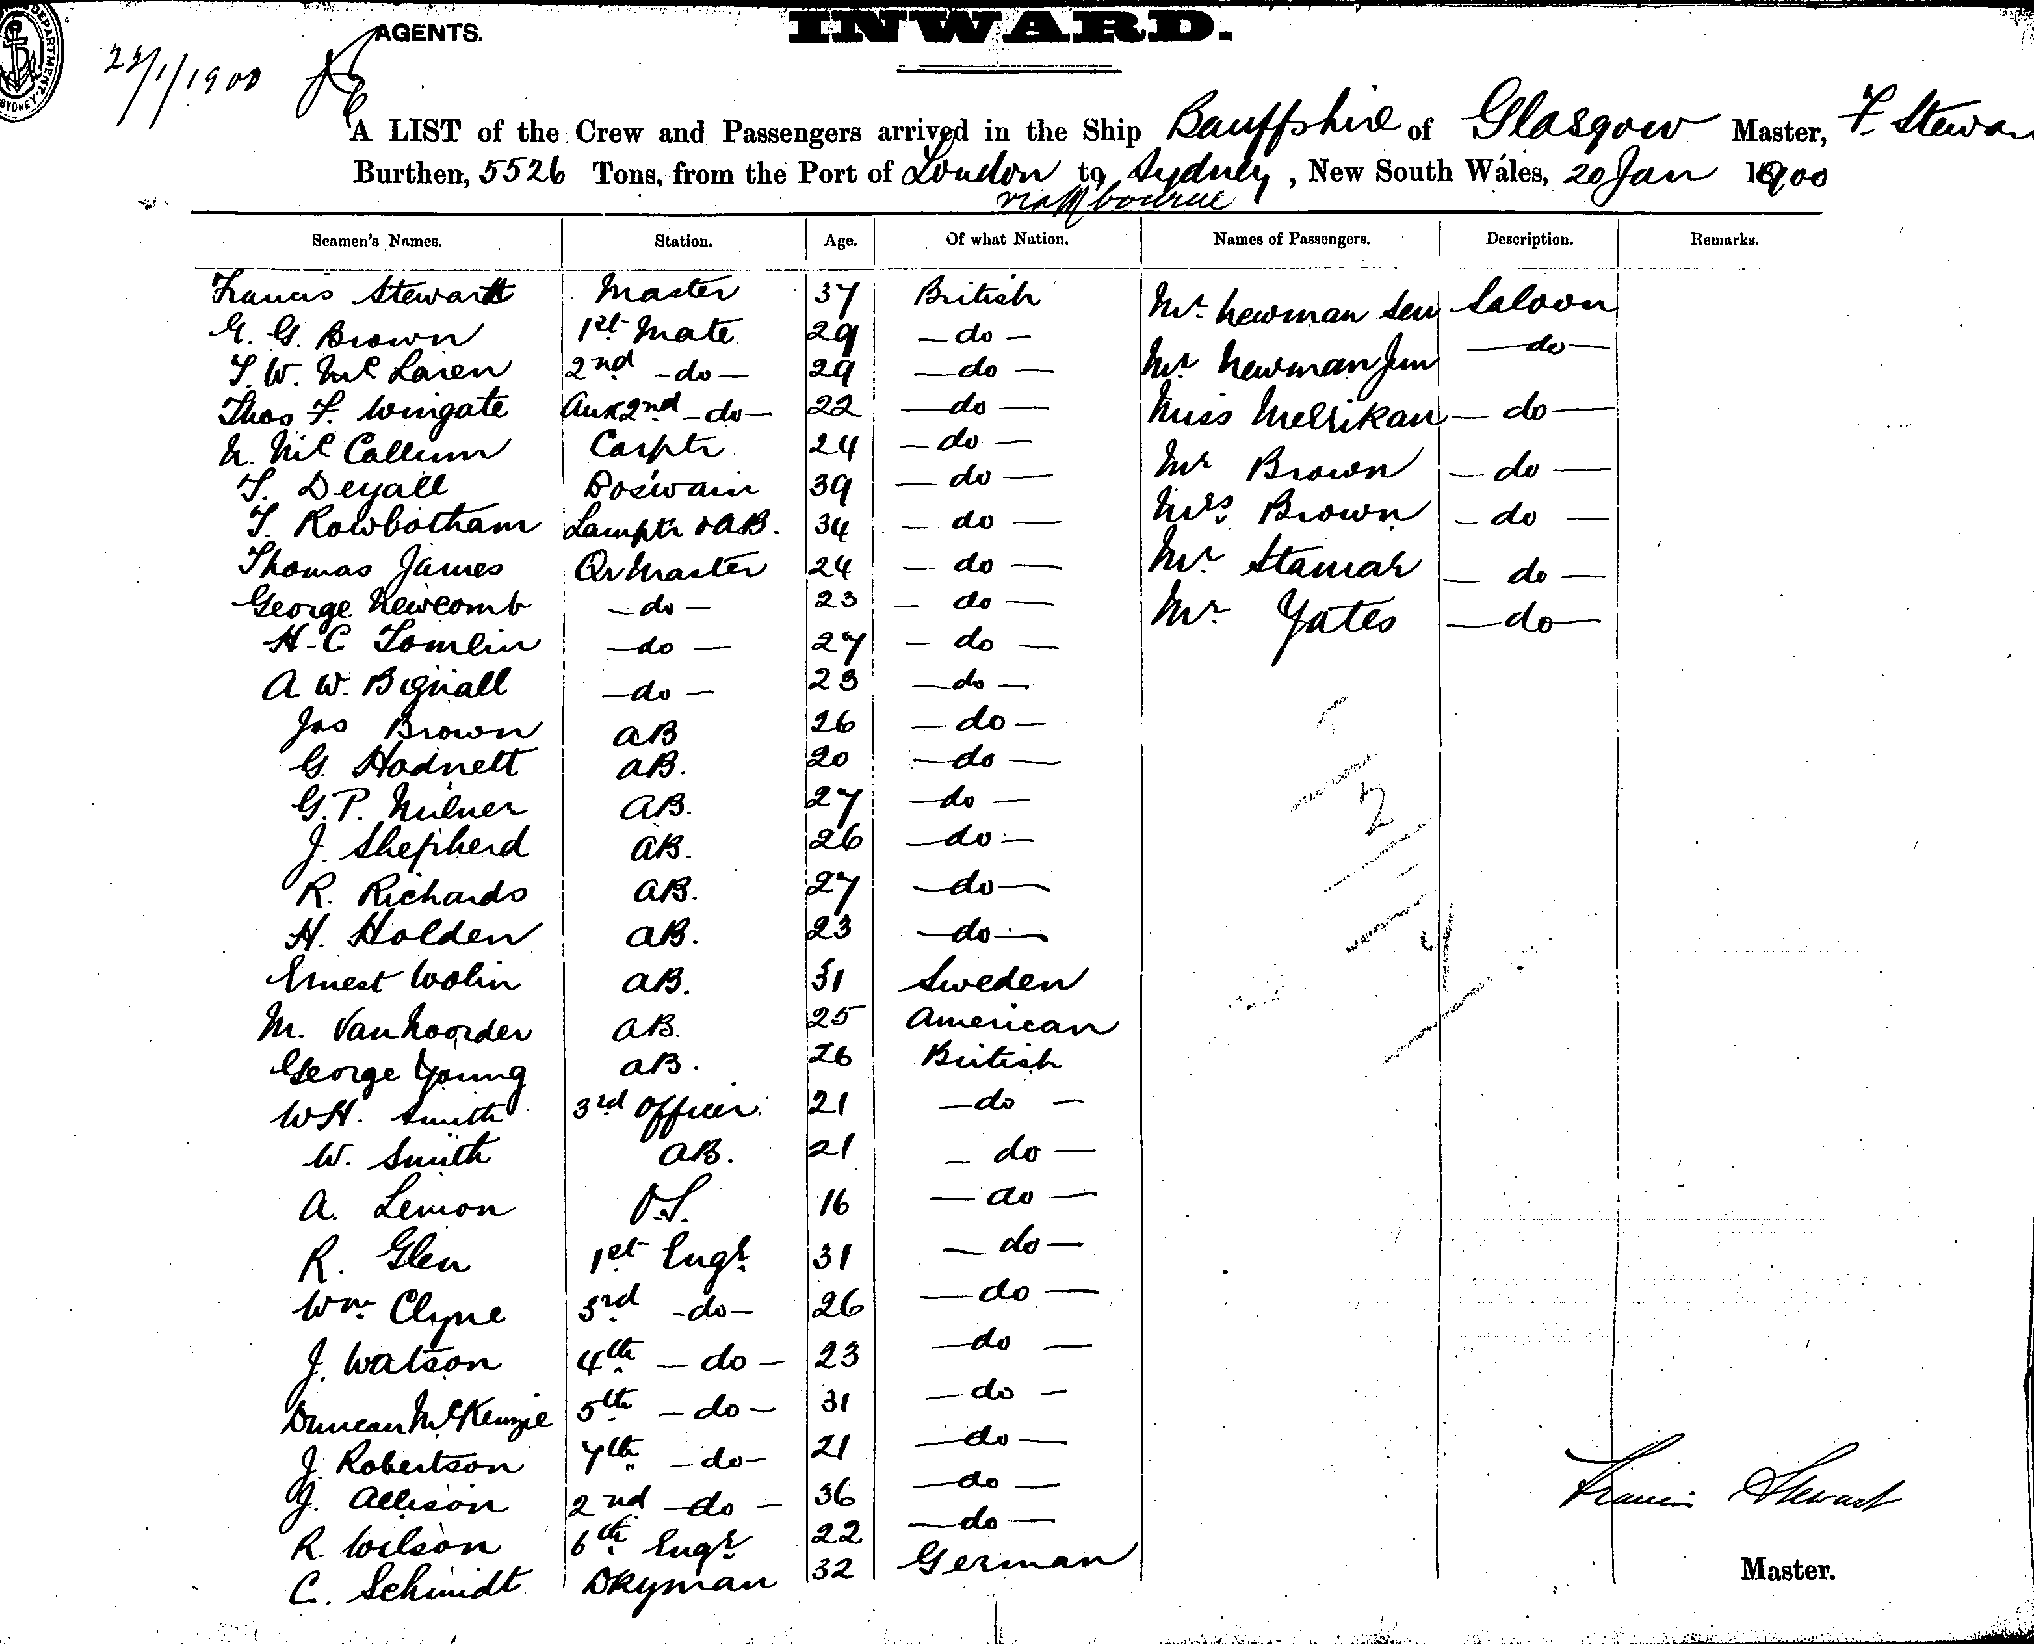 AGENTS.
INWARD.
22/1/1900
A LIST of the Crew and Passengers arrived in the Ship Banffshire of Glasgow Master, F. Stewar
Burthen, 5526 Tons, from the Port of London to Sydney, New South Wales, 20 Jan 1900
via Mbourne
Seamen's Names. Station. Age. Of what Nation. Names of Passengers. Description. Remarks.
Francis Stewart Master 37 British Mr. Newman Sen Saloon
G. G. Brown 1st Mate 29 - do - Mr Newman Jun - do -
T. W. McLaren 2nd - do - 29 - do - Miss Mellikan - do -
Thos F. Wingate Aux 2nd - do - 22 - do - Mr Brown - do -
N. McCallum Carptr 24 - do - Mrs. Brown - do -
T. Deyall Bos'wain 39 - do - Mr. Stamar - do -
T. Rowbotham Lamptr & AB. 34 - do - Mr. Yates - do -
Thomas James Qr Master 24 - do -
George Newcomb - do - 23 - do -
H. C Tomlin - do - 27 - do -
A W. Bignall - do - 23 - do -
Jas Brown AB 26 - do -
G. Hodnett AB. 20 - do -
G. P. Milner AB. 27 - do -
J. Shepherd AB. 26 - do -
R. Richards AB. 27 - do -
H. Holden AB. 23 - do -
Ernest Wolin AB. 31 Sweden
M. Van Noorder AB. 25 American
George Young AB. 26 British
W H. Smith 3rd Officer 21 - do -
W. Smith AB. 21 - do -
A. Lemon O.S. 16 - do -
R. Glen 1st Engr. 31 - do -
Wm. Clyne 3rd - do - 26 - do -
J. Watson 4th - do - 23 - do -
Duncan McKenzie 5th - do - 31 - do -
J. Robertson 7th - do - 21 - do -
J. Allison 2nd - do - 36 - do -
R. Wilson 6th Engr. 22 - do -
C. Schmidt Dkyman 32 German
Francis Stewart
Master.